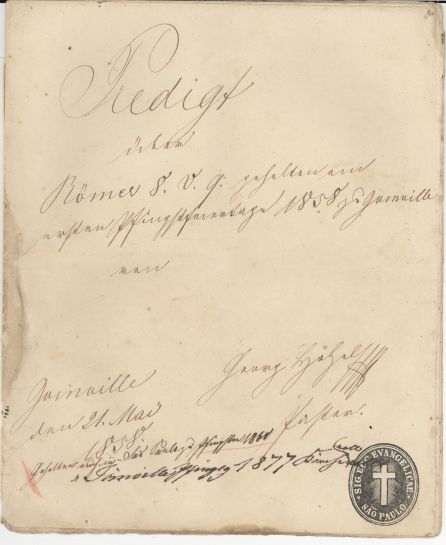 Predigt
über
Römer 8. V. 9. gehalten am
ersten Pfingstfeiertage 1858 zu Joinville
von
Georg Hölzel
Pastor.
Joinville
den 21. Mai
1858.
Gehalten auch in São Paulo, Pfingsten
" Joinville Pfingsten 1877
SIG. ECC. EVANGELICAE
SÃO PAULO